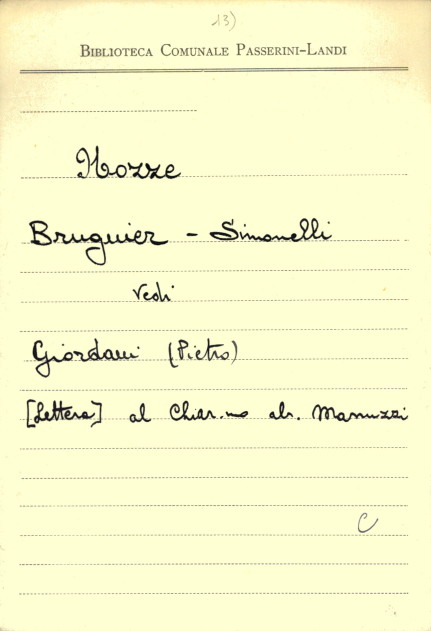 13)
BIBLIOTECA COMUNALE PASSERINI-LANDI
Nozze
Bruguier - Simonelli
Vedi
Giordani (Pietro)
[Lettera] al Chiar.mo ab. Manuzzi
C